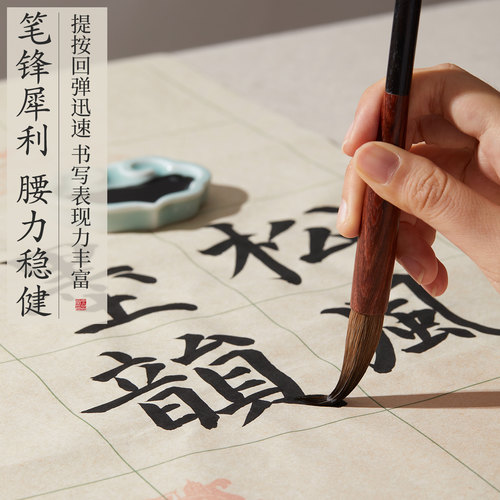 笔锋犀利 腰力稳健
提按回弹迅速 书写表现力丰富
松
風
韻